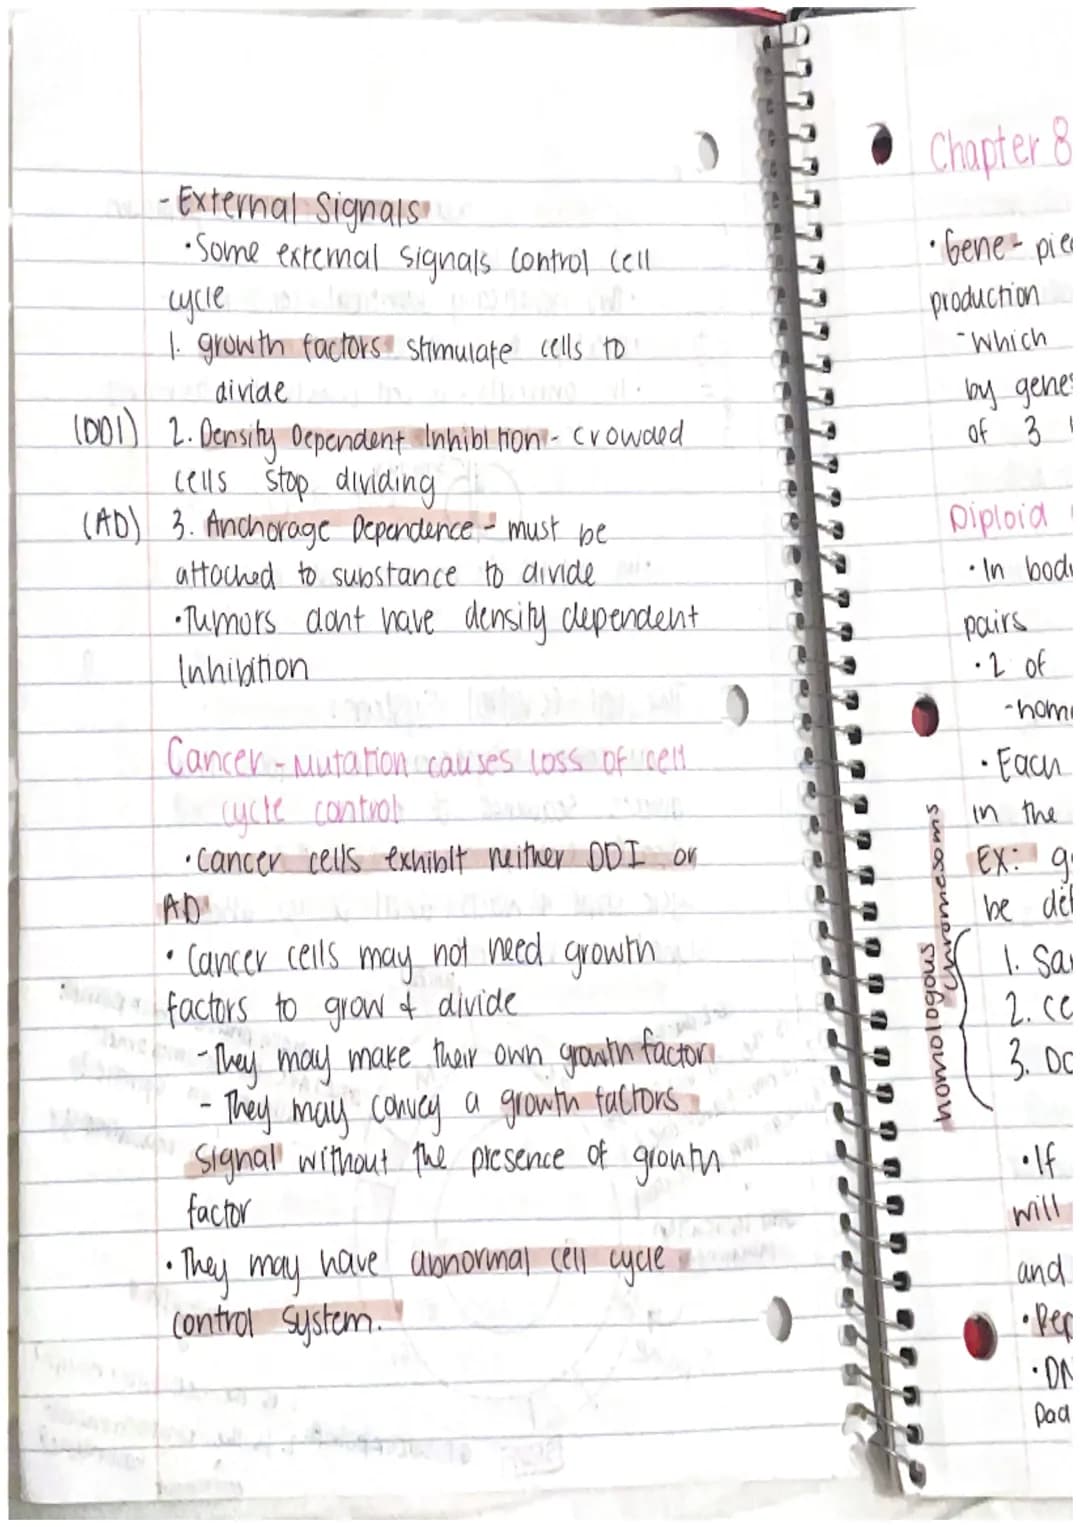 - External Signals
• Some external signals control cell
cycle
1. growth factors stimulate cells to
divide
(DDI) 2. Density Dependent Inhibition - crowded
cells stop dividing
(AD) 3. Anchorage Dependence - must be
attached to substance to divide
• Tumors dont have density dependent
Inhibition
Cancer - Mutation causes loss of cell
cycle control
• cancer cells exhibit neither DDI or
AD
• Cancer cells may not need growth
factors to grow & divide
- They may make their own growth factor
- They may convey a growth factors
Signal without the presence of growth
factor
• They may have abnormal cell cycle
control system.
Chapter 8
• Gene - pie
production
- which
by genes
of 3
Diploid
• In bod
pairs
• 2 of
- hom
• Each
in the
EX: g
be de
homologous
chromesoms
1. Sa
2. ce
3. DO
• If
will
and
• Rep
• DN
Daa